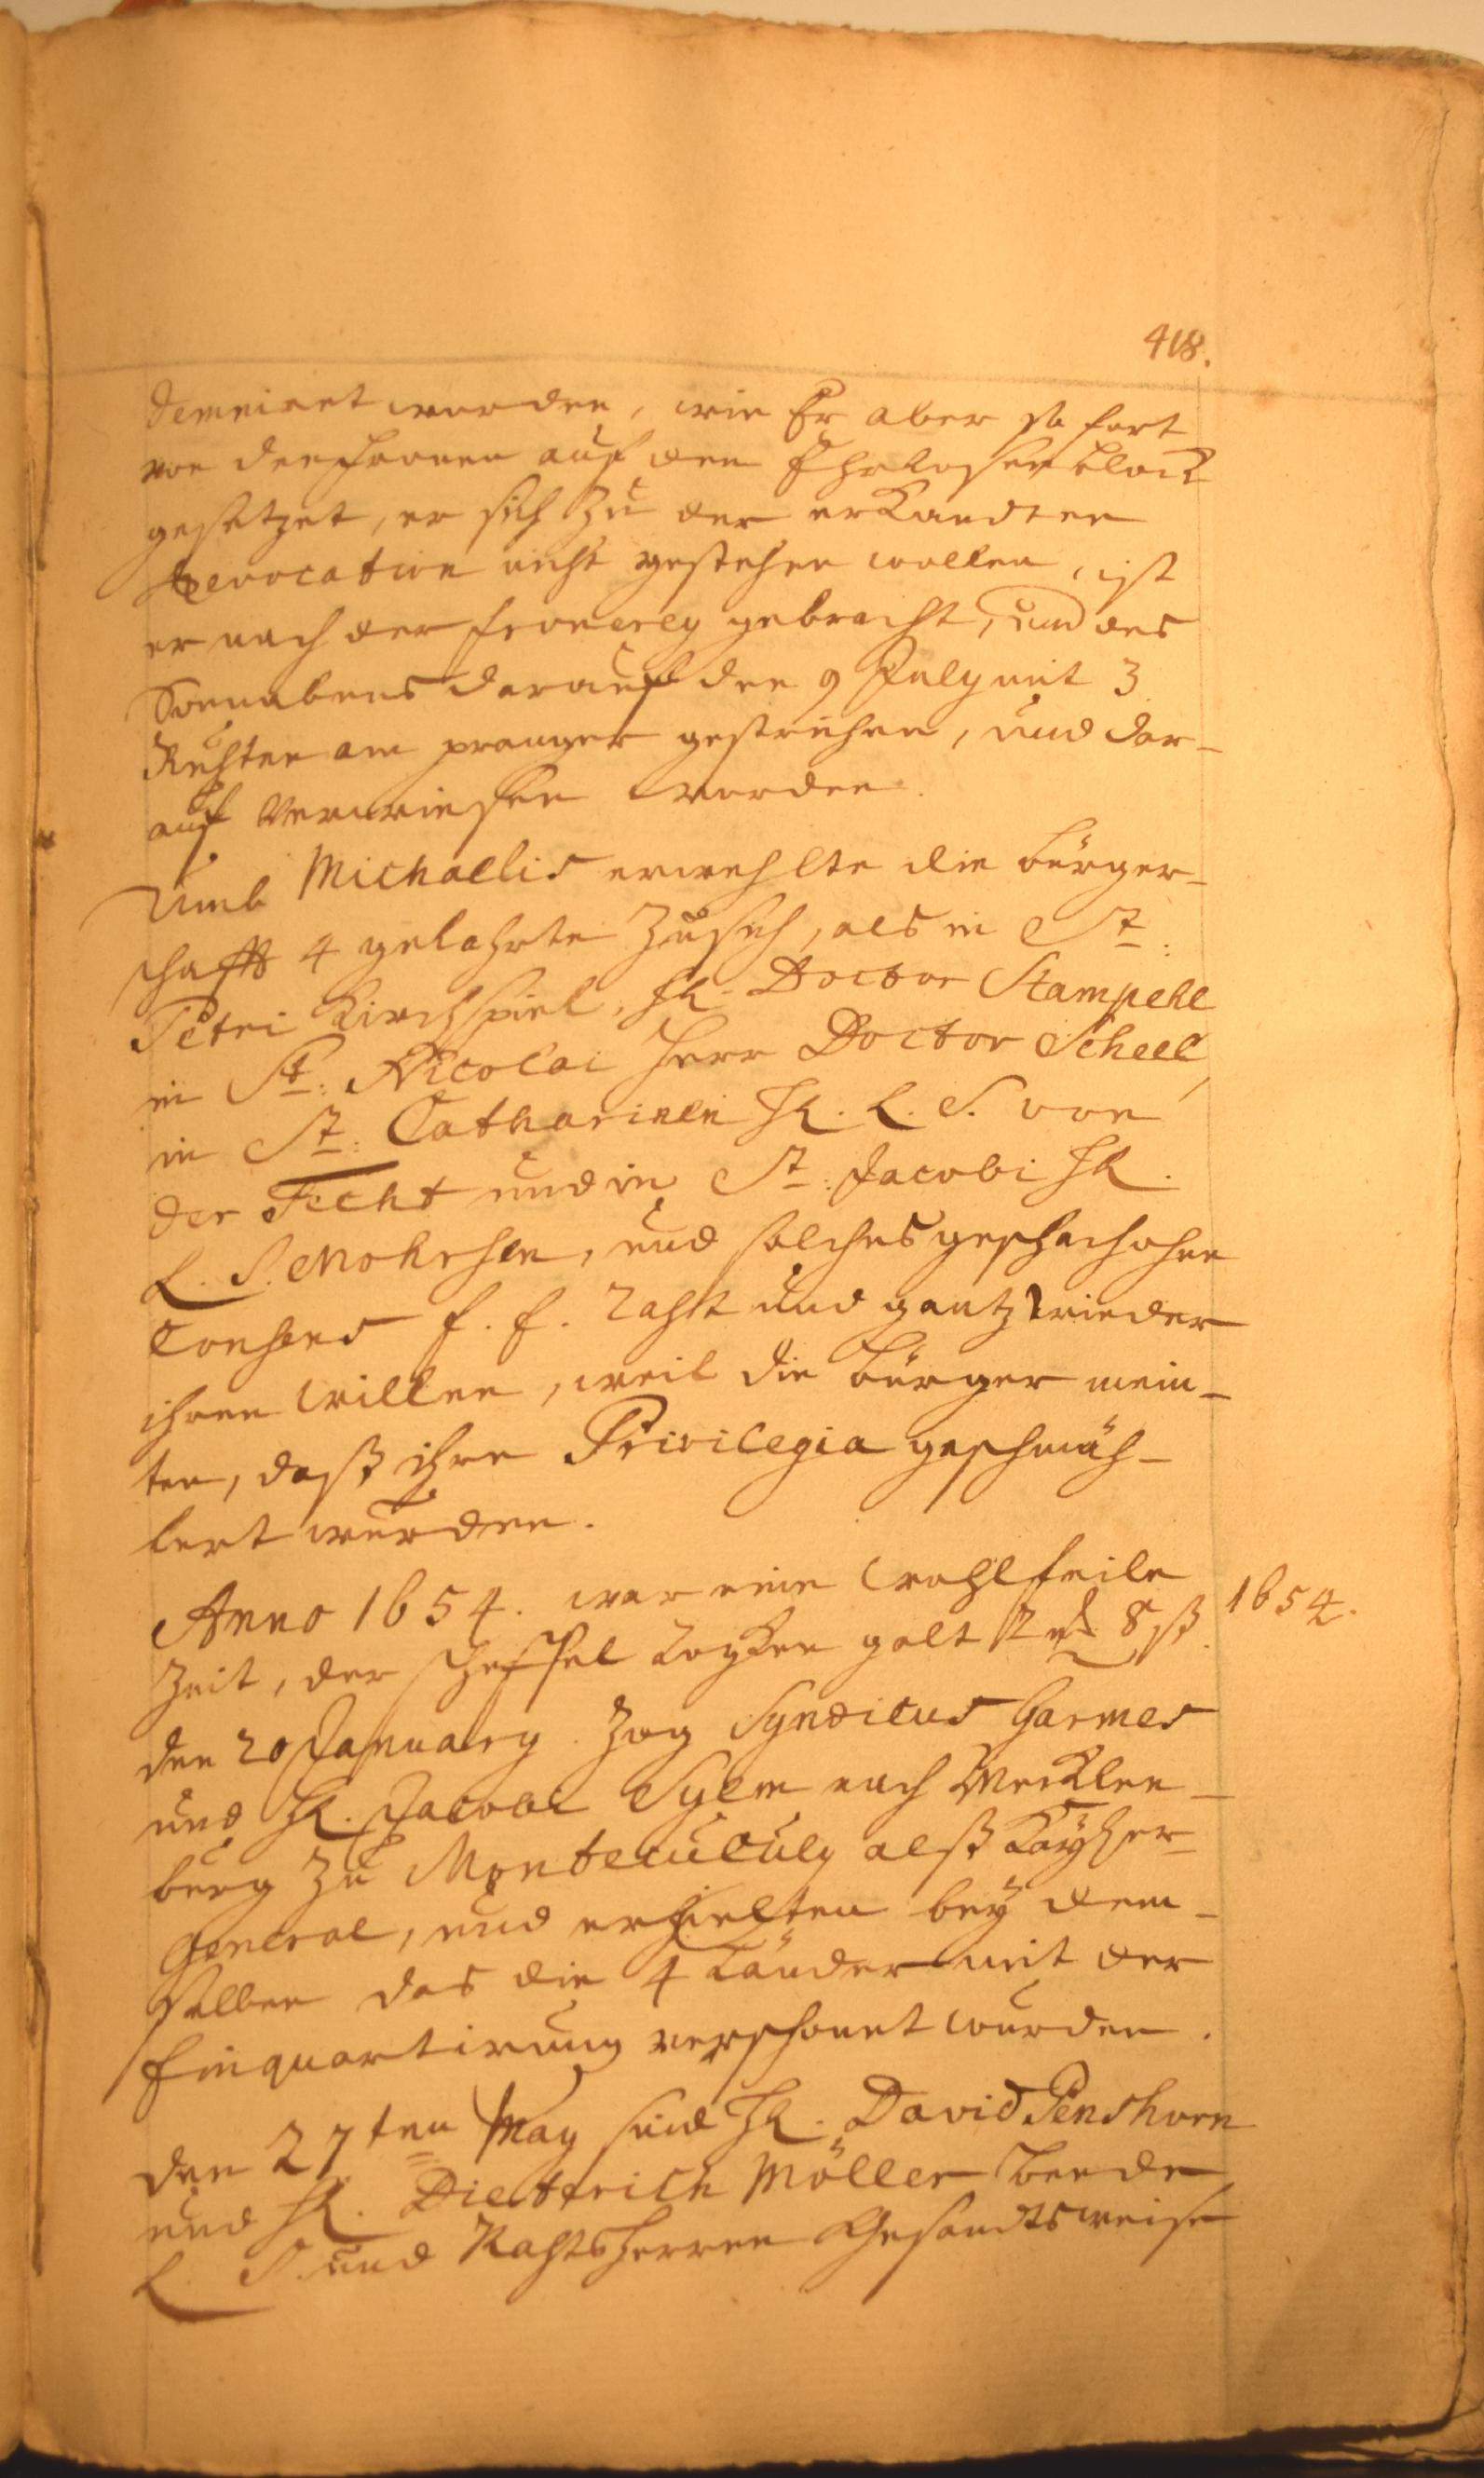 418.
demniret worden, wie Er aber so fort
von den fronen auf den Ehrlosen block
gesetzet, er sich zu der erkandten
Revocation nicht gestehen wollen, ist
er nach der fronerey gebracht, und des
Sonnabens darauf den 9 July mit 3
Ruhten am pranger gestrichen, und dar-
auf verwiesen worden.
Umb Michaelis erwehlte die bürger-
schafft 4 gelahrte zu sich, als in St:
Petri Kirchspiel, Hr. Doctor Stampehl
in St: Nicolai Herr Doctor Scheel,
in St: Catharinen Hr. L. S. von
der Fecht und in St: Jacobi Hr.
L. S. Mohrsen, und solches geschach ohne
Consens E. E. Rahts und gantz wieder
ihren willen, weil die bürger mein-
ten, daß ihre Privilegia geschmäh-
lert würden.
Anno 1654. war eine wohlfeile
1654.
Zeit, der scheffel Rogken galt 2 mk 8 ß.
den 20 January zog Syndicus Garmers
und Hr. Jacob Sylm nach Mecklen-
burg zu Montecuculy alß Kayser-
General, und erhielten bey dem-
selben das die 4 Länder mit der
Einquartirung verschonet wurden.
den 27ten May sind Hr. David Penshorn
und Hr. Dietterich Möller beede
L. S. und Rahtsherren Gesandtsweise